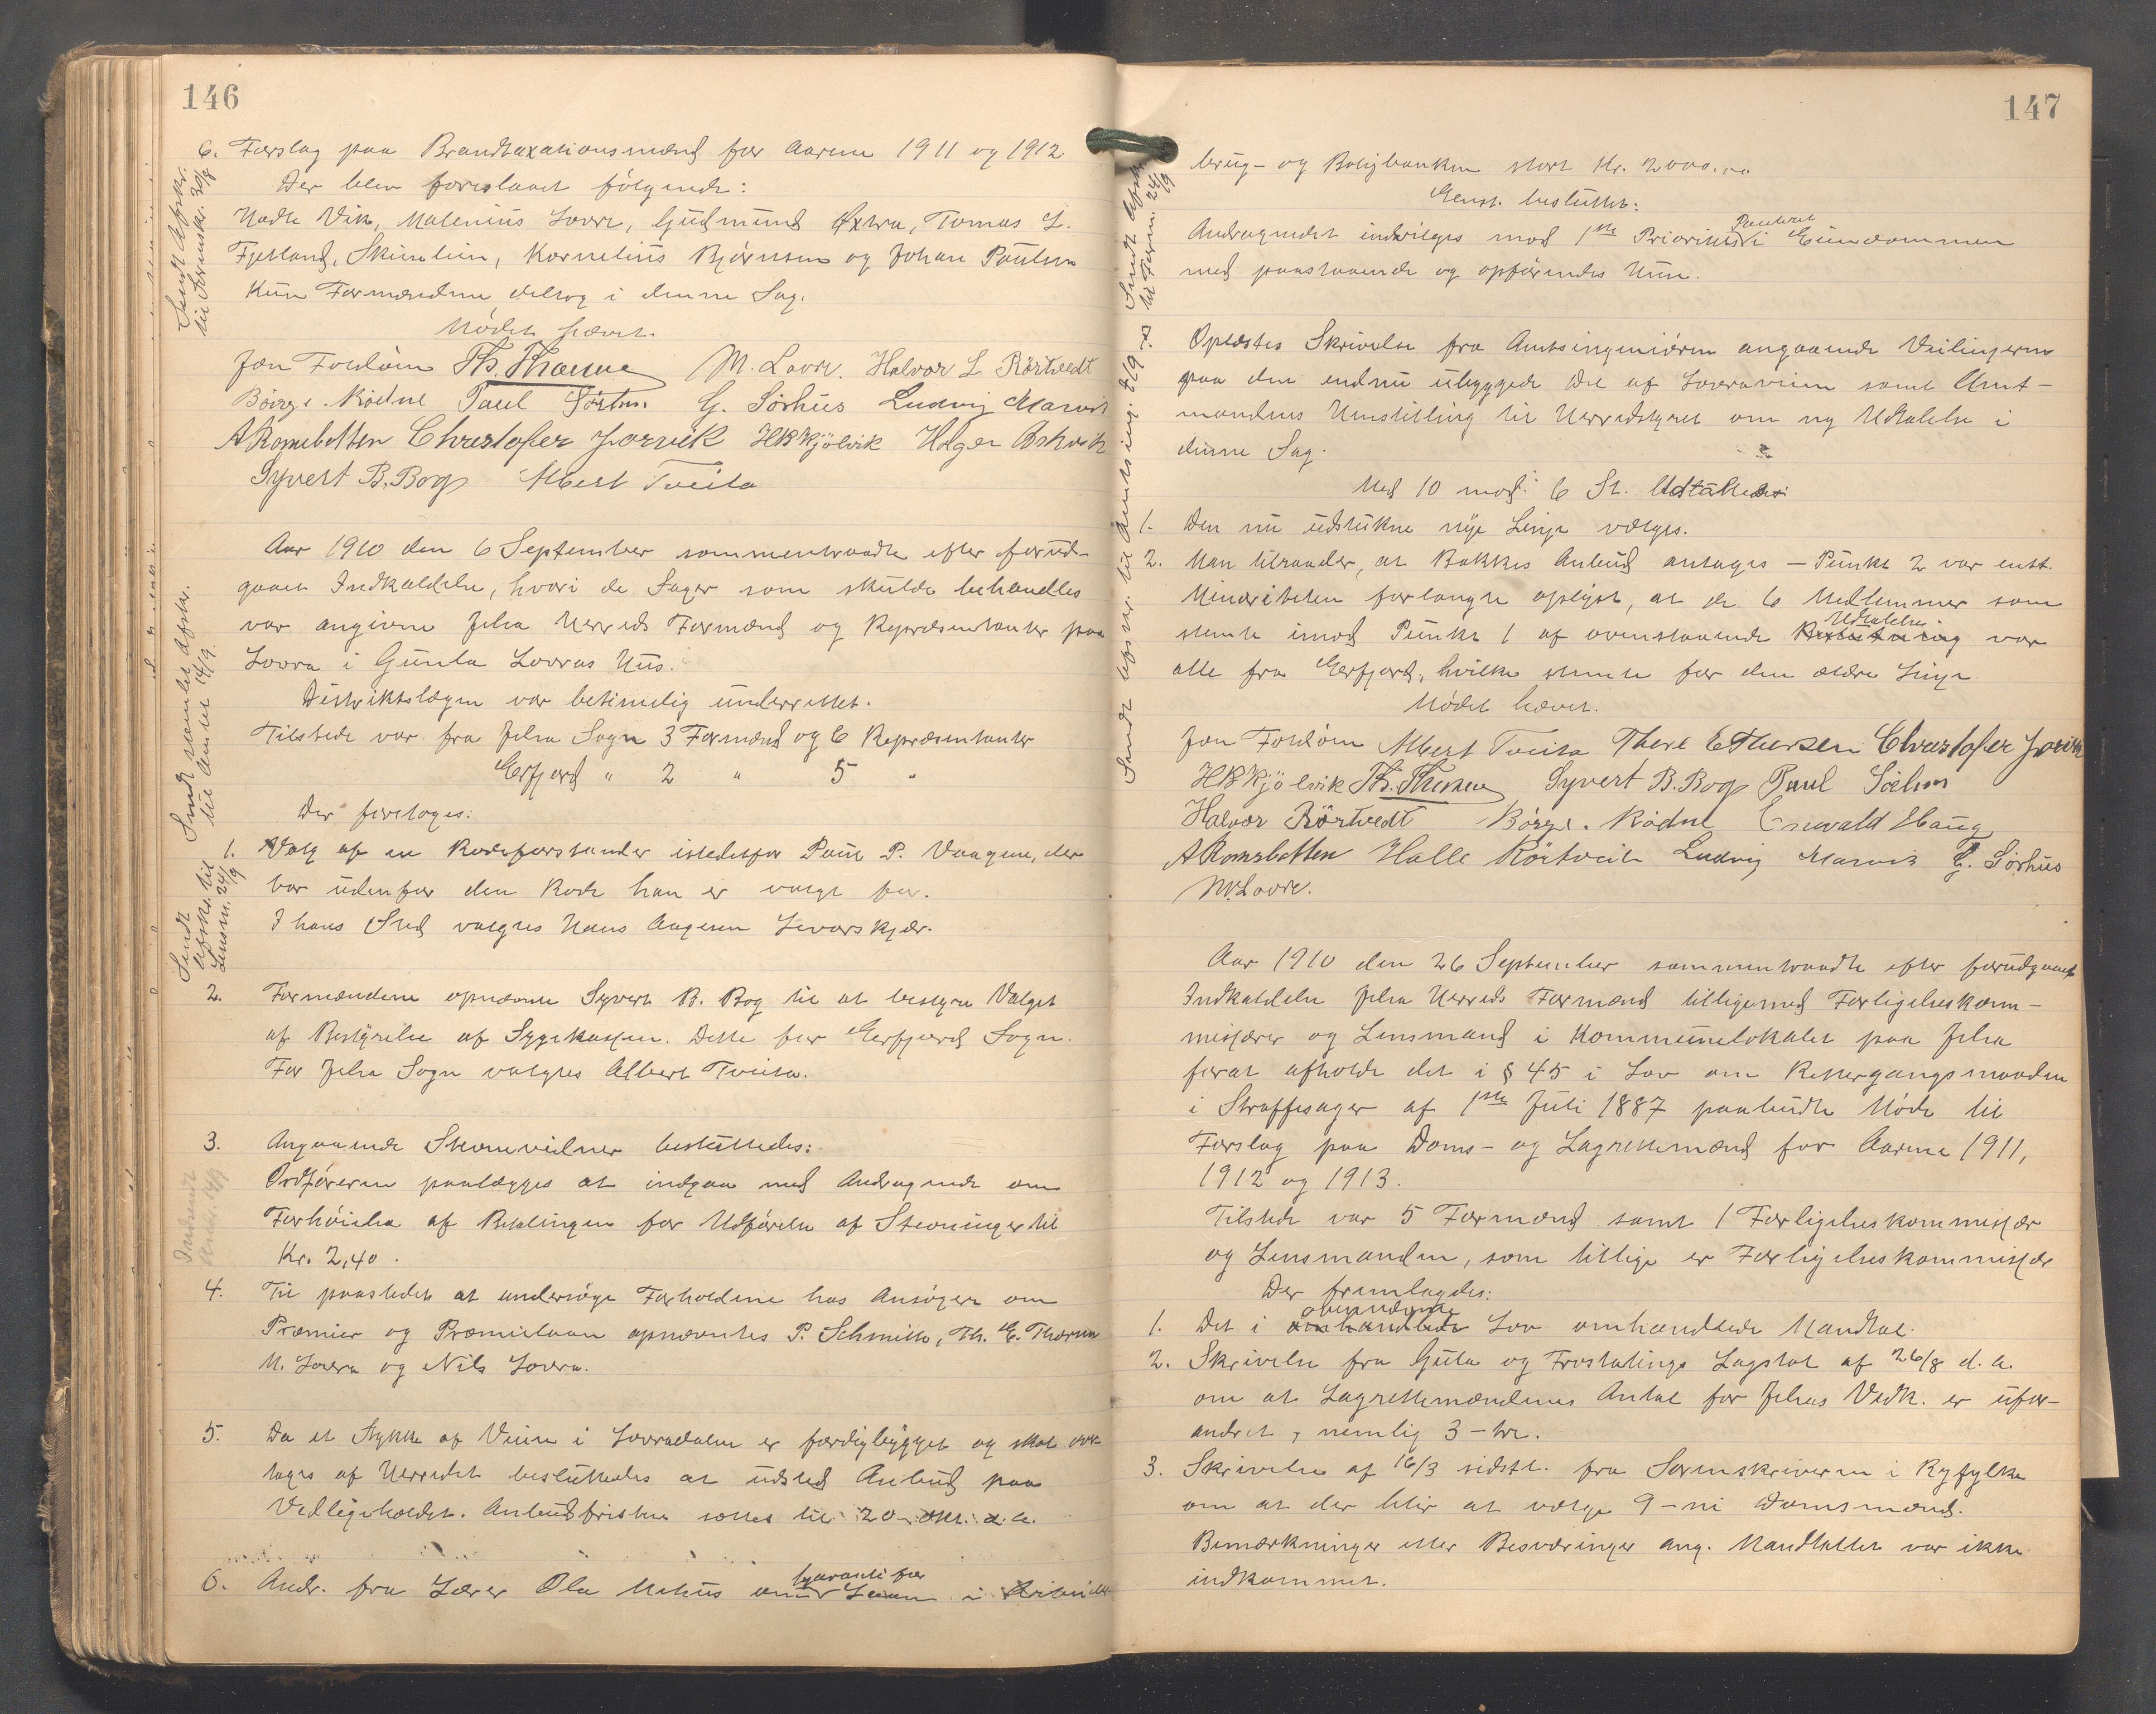 146
6. Forslag paa Brandtaxationsmænd for Aarene 1911 og 1912
Der blev foreslaaet følgende:
Vik, Malenius Lovre, Gudmund Østra, Tomas L.
Fjetland, Kornelius Bjørnsen og Johan Paulsen
Kun Formændene deltog i denne Sag.
Mødet hævet.
Jon Foldøm Th. Thorsen M. Lovre. Halvor L Rørtvedt
Børge. Rödne Paul G. Sörhus Ludvig Marvik
A Romsbotten Christofer Jorvik HBKjölvik Holger
Syvert B. Bog Albert Tveita
Sendt Afskr.
til Formskr. 30/8
Aar 1910 den 6 September sammentraadte efter forud-
gaaet Indkaldelse, hvori de Sager som skulde behandles
var angivne Jelsa Herreds Formænd og Repræsentanter paa
Lovra i Gunla Lovras Hus.
Distriktslægen var betimelig underrettet.
Tilstede var fra Jelsa Sogn 3 Formænd og 6 Repræsentanter
Erfjord " 2 " 5 "
Der foretoges:
1. Valg af en Rodeforstander istedetfor Paul P. Vaagene, der
bor udenfor den Rode han er valgt for.
I hans Sted valgtes Hans Aagesen Lovarskjær.
Sendt
Afskr. til
Lensm. 24/9
Sendt samlet Afskr.
til Amtet 14/9.
2. Formændene opnævnte Syvert B. Bog til at bestyre Valget
af Bestyrelse af Sygekassen. Dette for Erfjord Sogn.
For Jelsa Sogn valgtes Albert Tveita.
3. Angaaende Stevnevidner besluttedes:
Ordføreren paalægges at indgaa med Andragende om
Forhøielse af Betalingen for Udførelse af Stevninger til
Kr. 2,40.
4. Til paastedet at undersøge Forholdene hos Ansøgere om
Præmier og Præmielaan opnævntes P. Schmitt, Th. E. Thorsen
M. Lovra og Nils Lovra.
5. Da et Stykke af Veien i Lovradalen er færdigbygget og skal over-
tages af Herredet besluttedes at udsted Anbud paa
Vedligeholdet. Anbudsfristen sættes til 20 Okt. d.a.
6. Andr. fra Lærer Ola om Garanti for Laan i Arbeider-
147
brug- og Boligbanken stort Kr. 2000.00
Enst. besluttet:
Andragendet indvilges mod 1ste Prioritets Panteret i Eiendommen
med paastaaende og opførendes Hus.
7. Oplæstes Skrivelse fra Amtsingeniøren angaaende Veilinjerne
paa den endnu ubyggede Del af Lovraveien samt Amt-
mandens Henstilling til Herredstyret om ny Udtalelse i
denne Sag.
Med 10 mod 6 St. Udtaltes:
1. Den nu udstukne nye Linje vælges.
2. Man tilraader, at Bakkes Anbud antages — Punkt 2 var enst.
Minoriteten forlangte oplyst, at de 6 Medlemmer som
stemte imod Punkt 1 af ovenstaaende Beslutning Udtalelse var
alle fra Erfjord, hvilke stemte for den ældre Linje.
Mødet hævet.
Sendt Afskr. til Amtsing. 8/9
Sendt Afskr.
til Form. 24/9
Jon Foldøm Albert Tveita Thore E Thorsen Christofer Jorvik
HBKjölvik Th. Thorsen Syvert B. Bog Paul
Halvor Rörtvedt Börge. Rödne Enevald Haug
A Romsbotten Halle Rörtveit Ludvig Marvik G. Sörhus
M. Lovre.
Aar 1910 den 26 September sammentraadte efter forudgaaet
Indkaldelse Jelsa Herreds Formænd tilligemed Forligelseskom-
missærer og Lensmand i Kommunelokalet paa Jelsa
forat afholde det i § 45 i Lov om Rettergangsmaaden
i Straffesager af 1ste Juli 1887 paabudte Møde til
Forslag paa Doms- og Lagrettemænd for Aarene 1911,
1912 og 1913.
Tilstede var 5 Formænd samt 1 Forligelseskommissær
og Lensmanden, som tillige er Forligelseskommissær
Der fremlagdes:
1. Det i omhandlede ovennævnte Lov omhandlede Mandtal.
2. Skrivelse fra Gula og Frostatings Lagstol af 26/8 d.a.
om at Lagrettemændenes Antal for Jelsas Vedk. er ufor-
andret, nemlig 3-tre.
3. Skrivelse af 16/3 sidstl. fra Sorenskriveren i Ryfylke
om at der blir at vælge 9-ni Domsmænd.
Bemærkninger eller Besværinger ang. Mandtallet var ikke
indkommet.